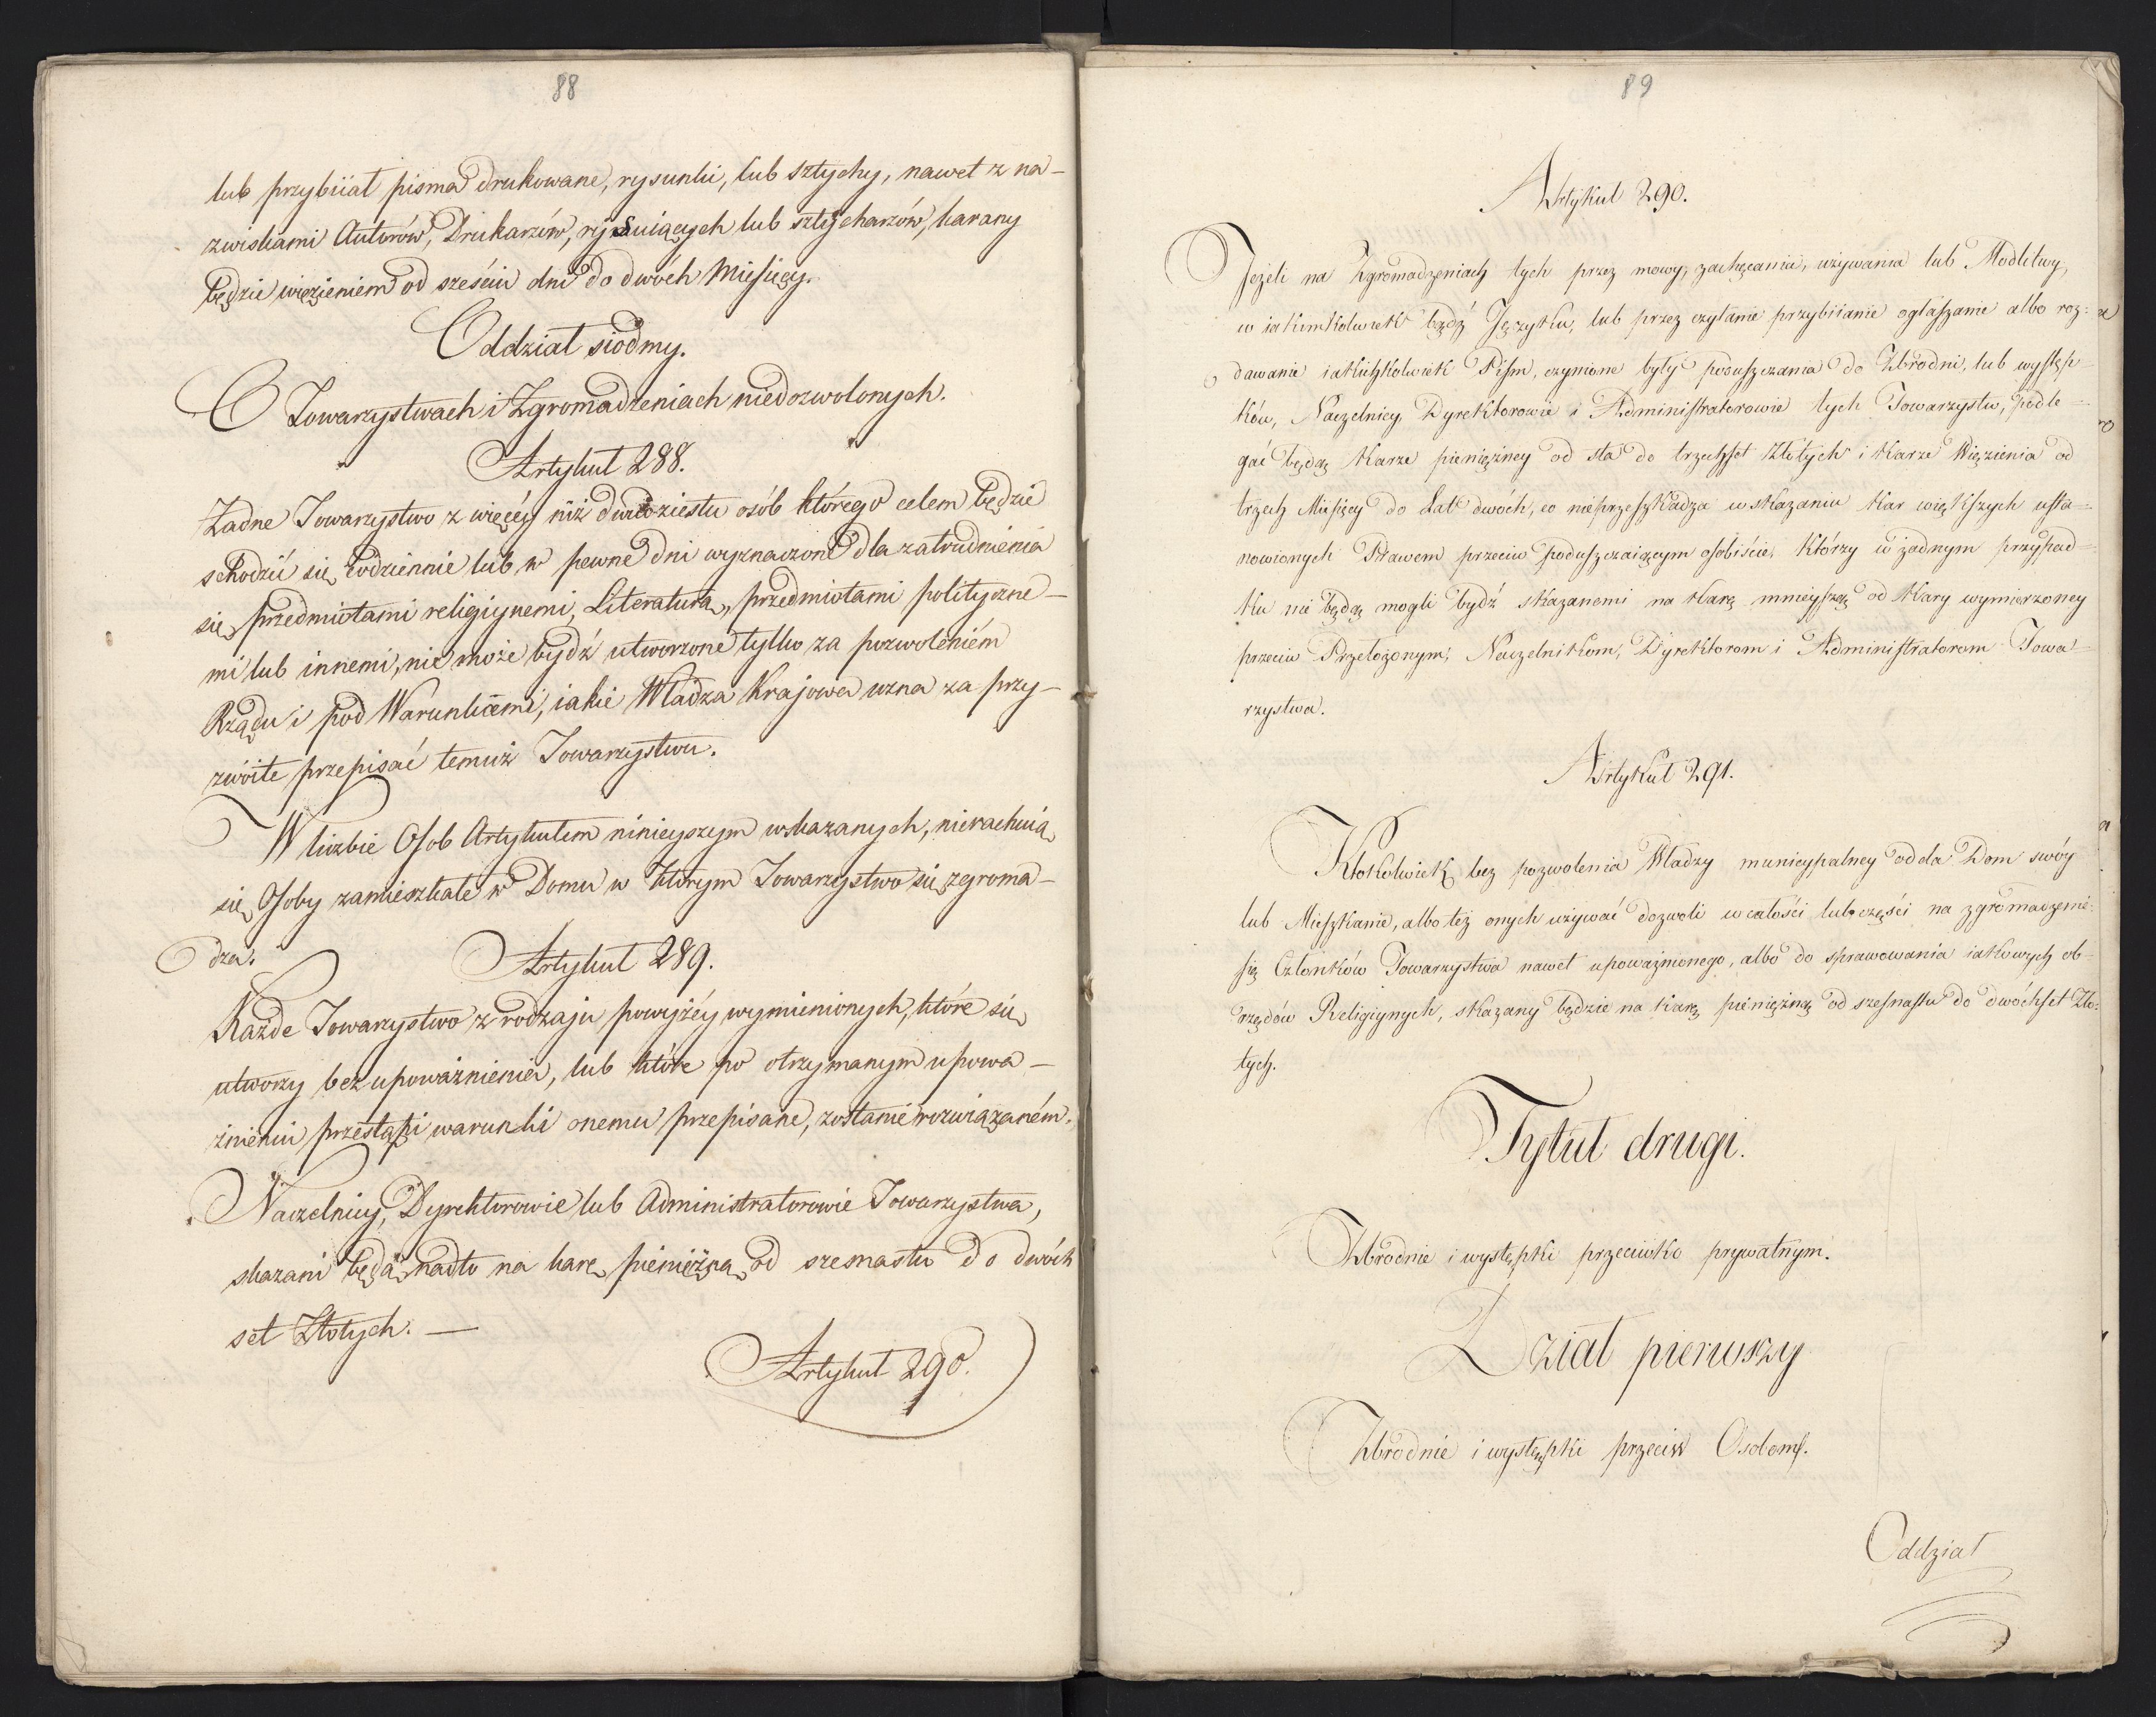 88
lub przybiiał pisma drukowane, rysunki, lub sztychy, nawet z na-
zwiskami Autorów, Drukarzów, rysuiących lub sztycharzów, karany
będzie więzieniem od sześciu dni do dwóch Miesięcy.
Oddział siódmy.
O Towarzystwach i Zgromadzeniach niedozwolonych.
Artykuł 288.
Żadne Towarzystwo z więcéy niż dwudziestu osób którego celem będzie
schodzić się codziennie lub w pewne dni wyznaczone dla zatrudnienia
się przedmiotami religiynemi, Literaturą, przedmiotami polityczne-
mi lub innemi, nie może bydź utworzone tylko za pozwoleniém
Rządu i pod Warunkami, iakie Władza Krajowa uzna za przy-
zwoite przepisać temuż Towarzystwu.
W liczbie Osob Artykułem ninieyszym wskazanych, nierachuią
się Osoby zamieszkałe w Domu w którym Towarzystwo się zgroma-
dza.
Artykuł 289.
Każde Towarzystwo z rodzaju powyżéy wymienionych, które się
utworzy bez upoważnienia, lub które po otrzymanym upowa-
żnieniu przestąpi warunki onemu przepisane, zostanie rozwiązaném.
Naczelnicy, Dyrektorowie lub Administratorowie Towarzystwa,
skazani będą nadto na karę pieniężną od szesnastu do dwóch
set Złotych. —
Artykuł 290.
89
Artykuł 290.
Jeżeli na Zgromadzeniach tych przez mowy, zachęcania, używania lub Modlitwy,
w iakimkolwiek bądź Języku, lub przez czytanie przybiianie ogłaszanie albo roz-
dawanie iakichkolwiek Pism, czynione były poduszczania do Zbrodni, lub występ-
ków, Naczelnicy, Dyrektorowie i Administratorowie tych Towarzystw, podle-
gać będą Karze pieniężney od sta do trzechset Złotych i Karze Więzienia od
trzech Miesięcy do Lat dwóch, co nieprzeszkadza wskazaniu Kar większych usta-
nowionych Prawem przeciw poduszczaiącym osobiście, Którzy w żadnym przypad-
ku nie będą mogli bydź skazanemi na Karę mnieyszą od Kary wymierzoney
przeciw Przełożonym, Naczelnikom, Dyrektorom i Administratorom Towa-
rzystwa.
Artykuł 291.
Ktokolwiek bez pozwolenia Władzy municypalney odda Dom swóy
lub Mieszkanie, albo też onych używać dozwoli w całości lub części na zgromadzenie
się Członków Towarzystwa nawet upoważnionego, albo do sprawowania iakowych ob-
rzędów Religiynych, skazany będzie na Karę pieniężną od szesnastu do dwóchset Zło-
tych.
Tytuł drugi.
Zbrodnie i występki przeciwko prywatnym.
Dział pierwszy
Zbrodnie i występki przeciw Osobom.
Oddział